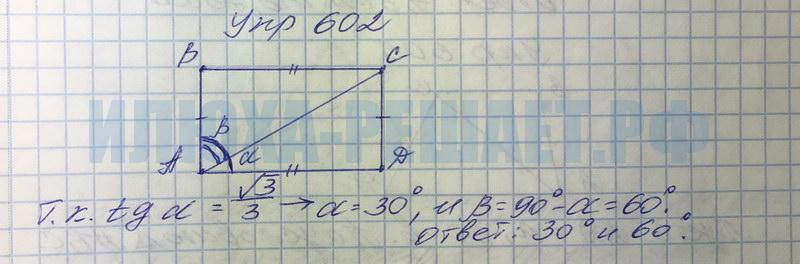 Упр 602
B C
ИЛЮХА-РЕШАЕТ.РФ
β
A α D
т.к. tg α = √3/3 → α=30°, и β=90°-α=60°.
Ответ: 30° и 60°.